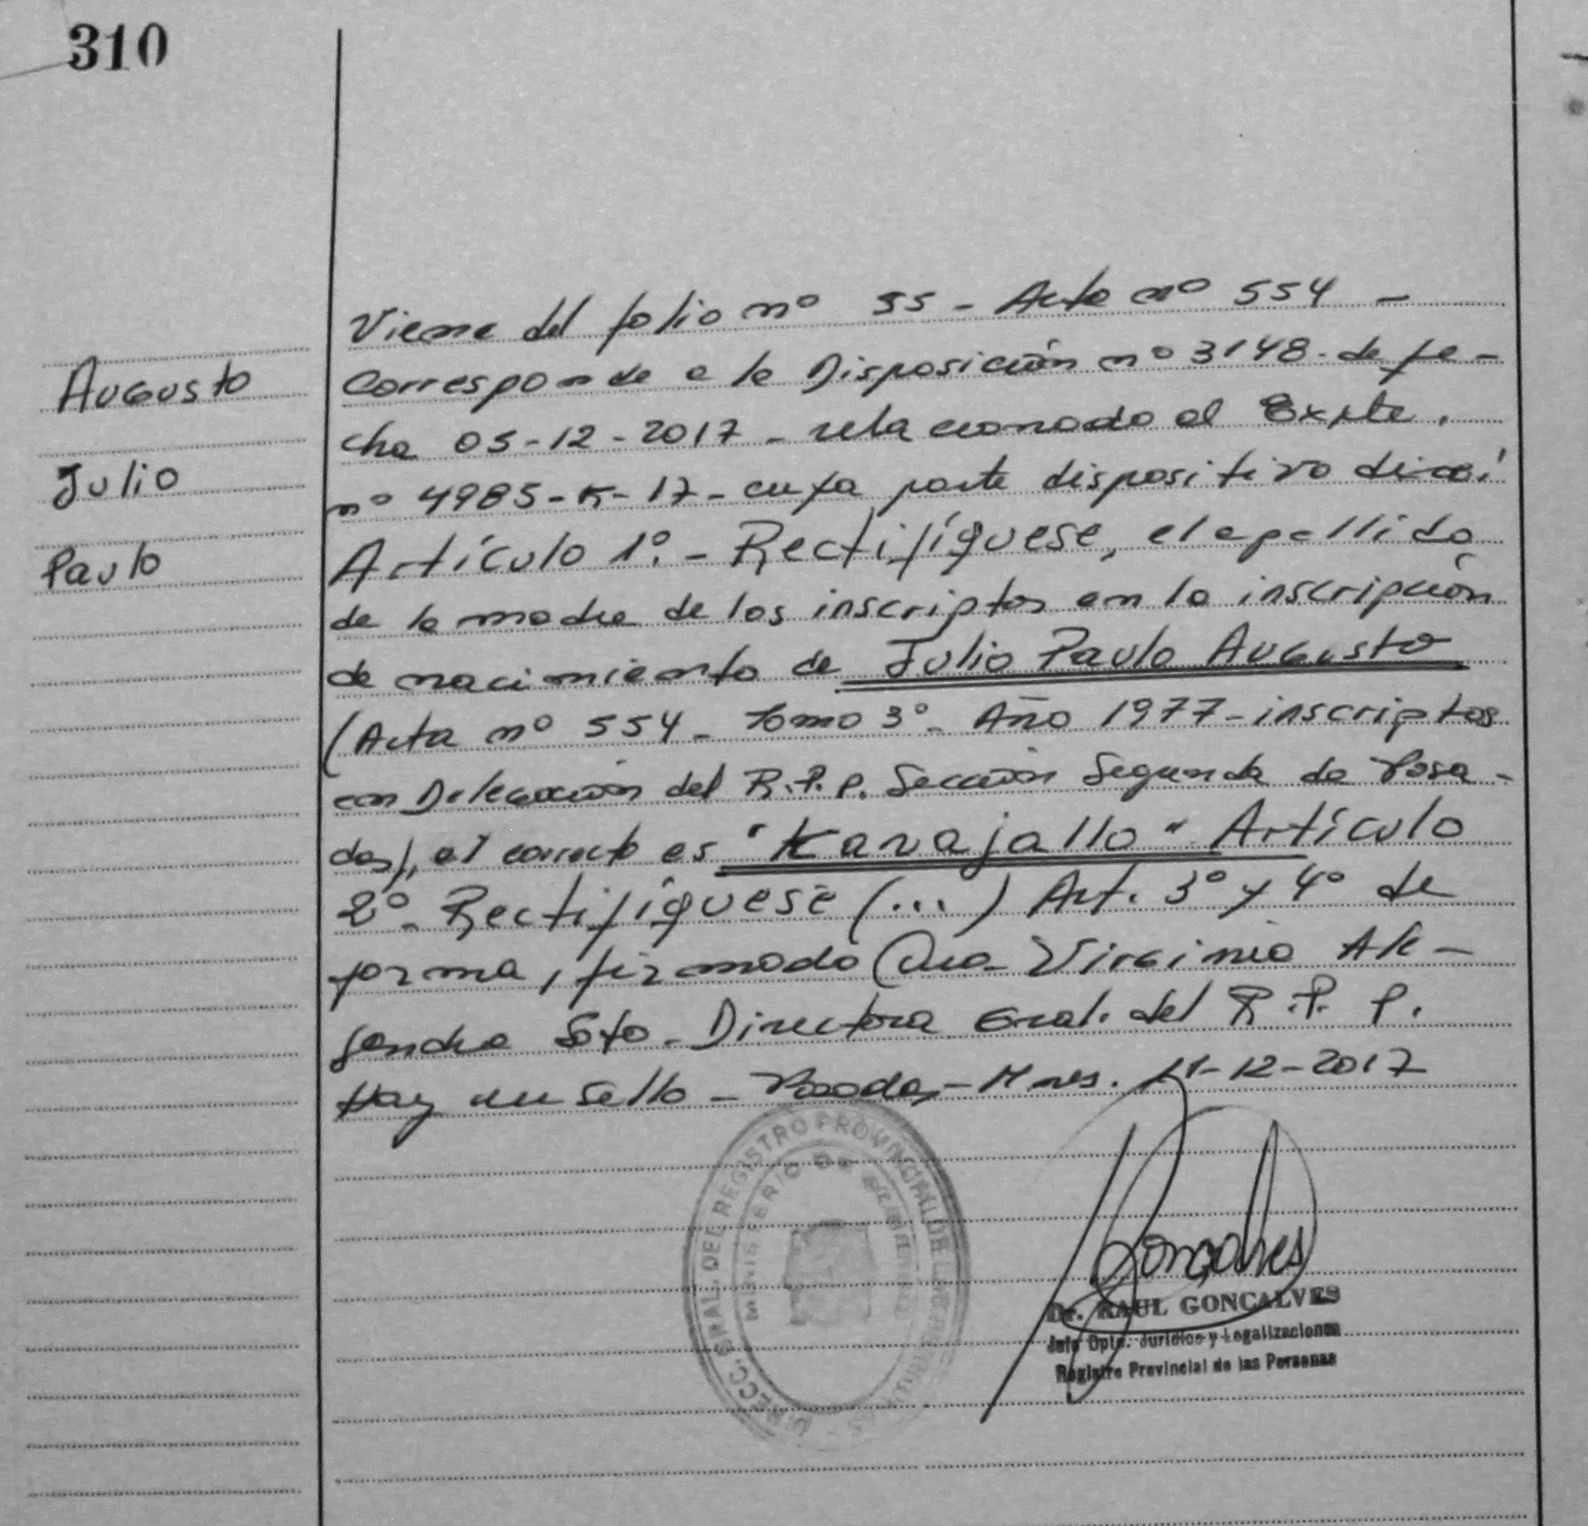 310
Augusto
Julio
Paulo
Viene del folio nº 55 - Acta nº 554 -
Corresponde a la Disposición nº 3148. de fe-
cha 05-12-2017 - relacionado al Expte.
nº 4985-K-17 - cuya parte dispositiva dice:
Artículo 1º. - Rectifíquese, el apellido
de la madre de los inscriptos en la inscripción
de nacimiento de Julio Paulo Augusto
(Acta nº 554 - tomo 3º - Año 1977 - inscriptos
en Delegación del R.P.P. Sección Segunda de Posa-
das), el correcto es "Karajallo" Artículo
2º - Rectifíquese (...) Art. 3º y 4º de
forma, firmado Dra. Virginia Ale-
jandra Soto - Directora Gral. del R.P.P.
Hay un sello - Posadas, - Mnes. 11-12-2017
DIRECC. GRAL. DEL REGISTRO PROVINCIAL DE LAS PERSONAS
MINISTERIO DE GOBIERNO
Gonçalves
Dr. RAUL GONÇALVES
Jefe Dpto. Jurídico y Legalizaciones
Registro Provincial de las Personas